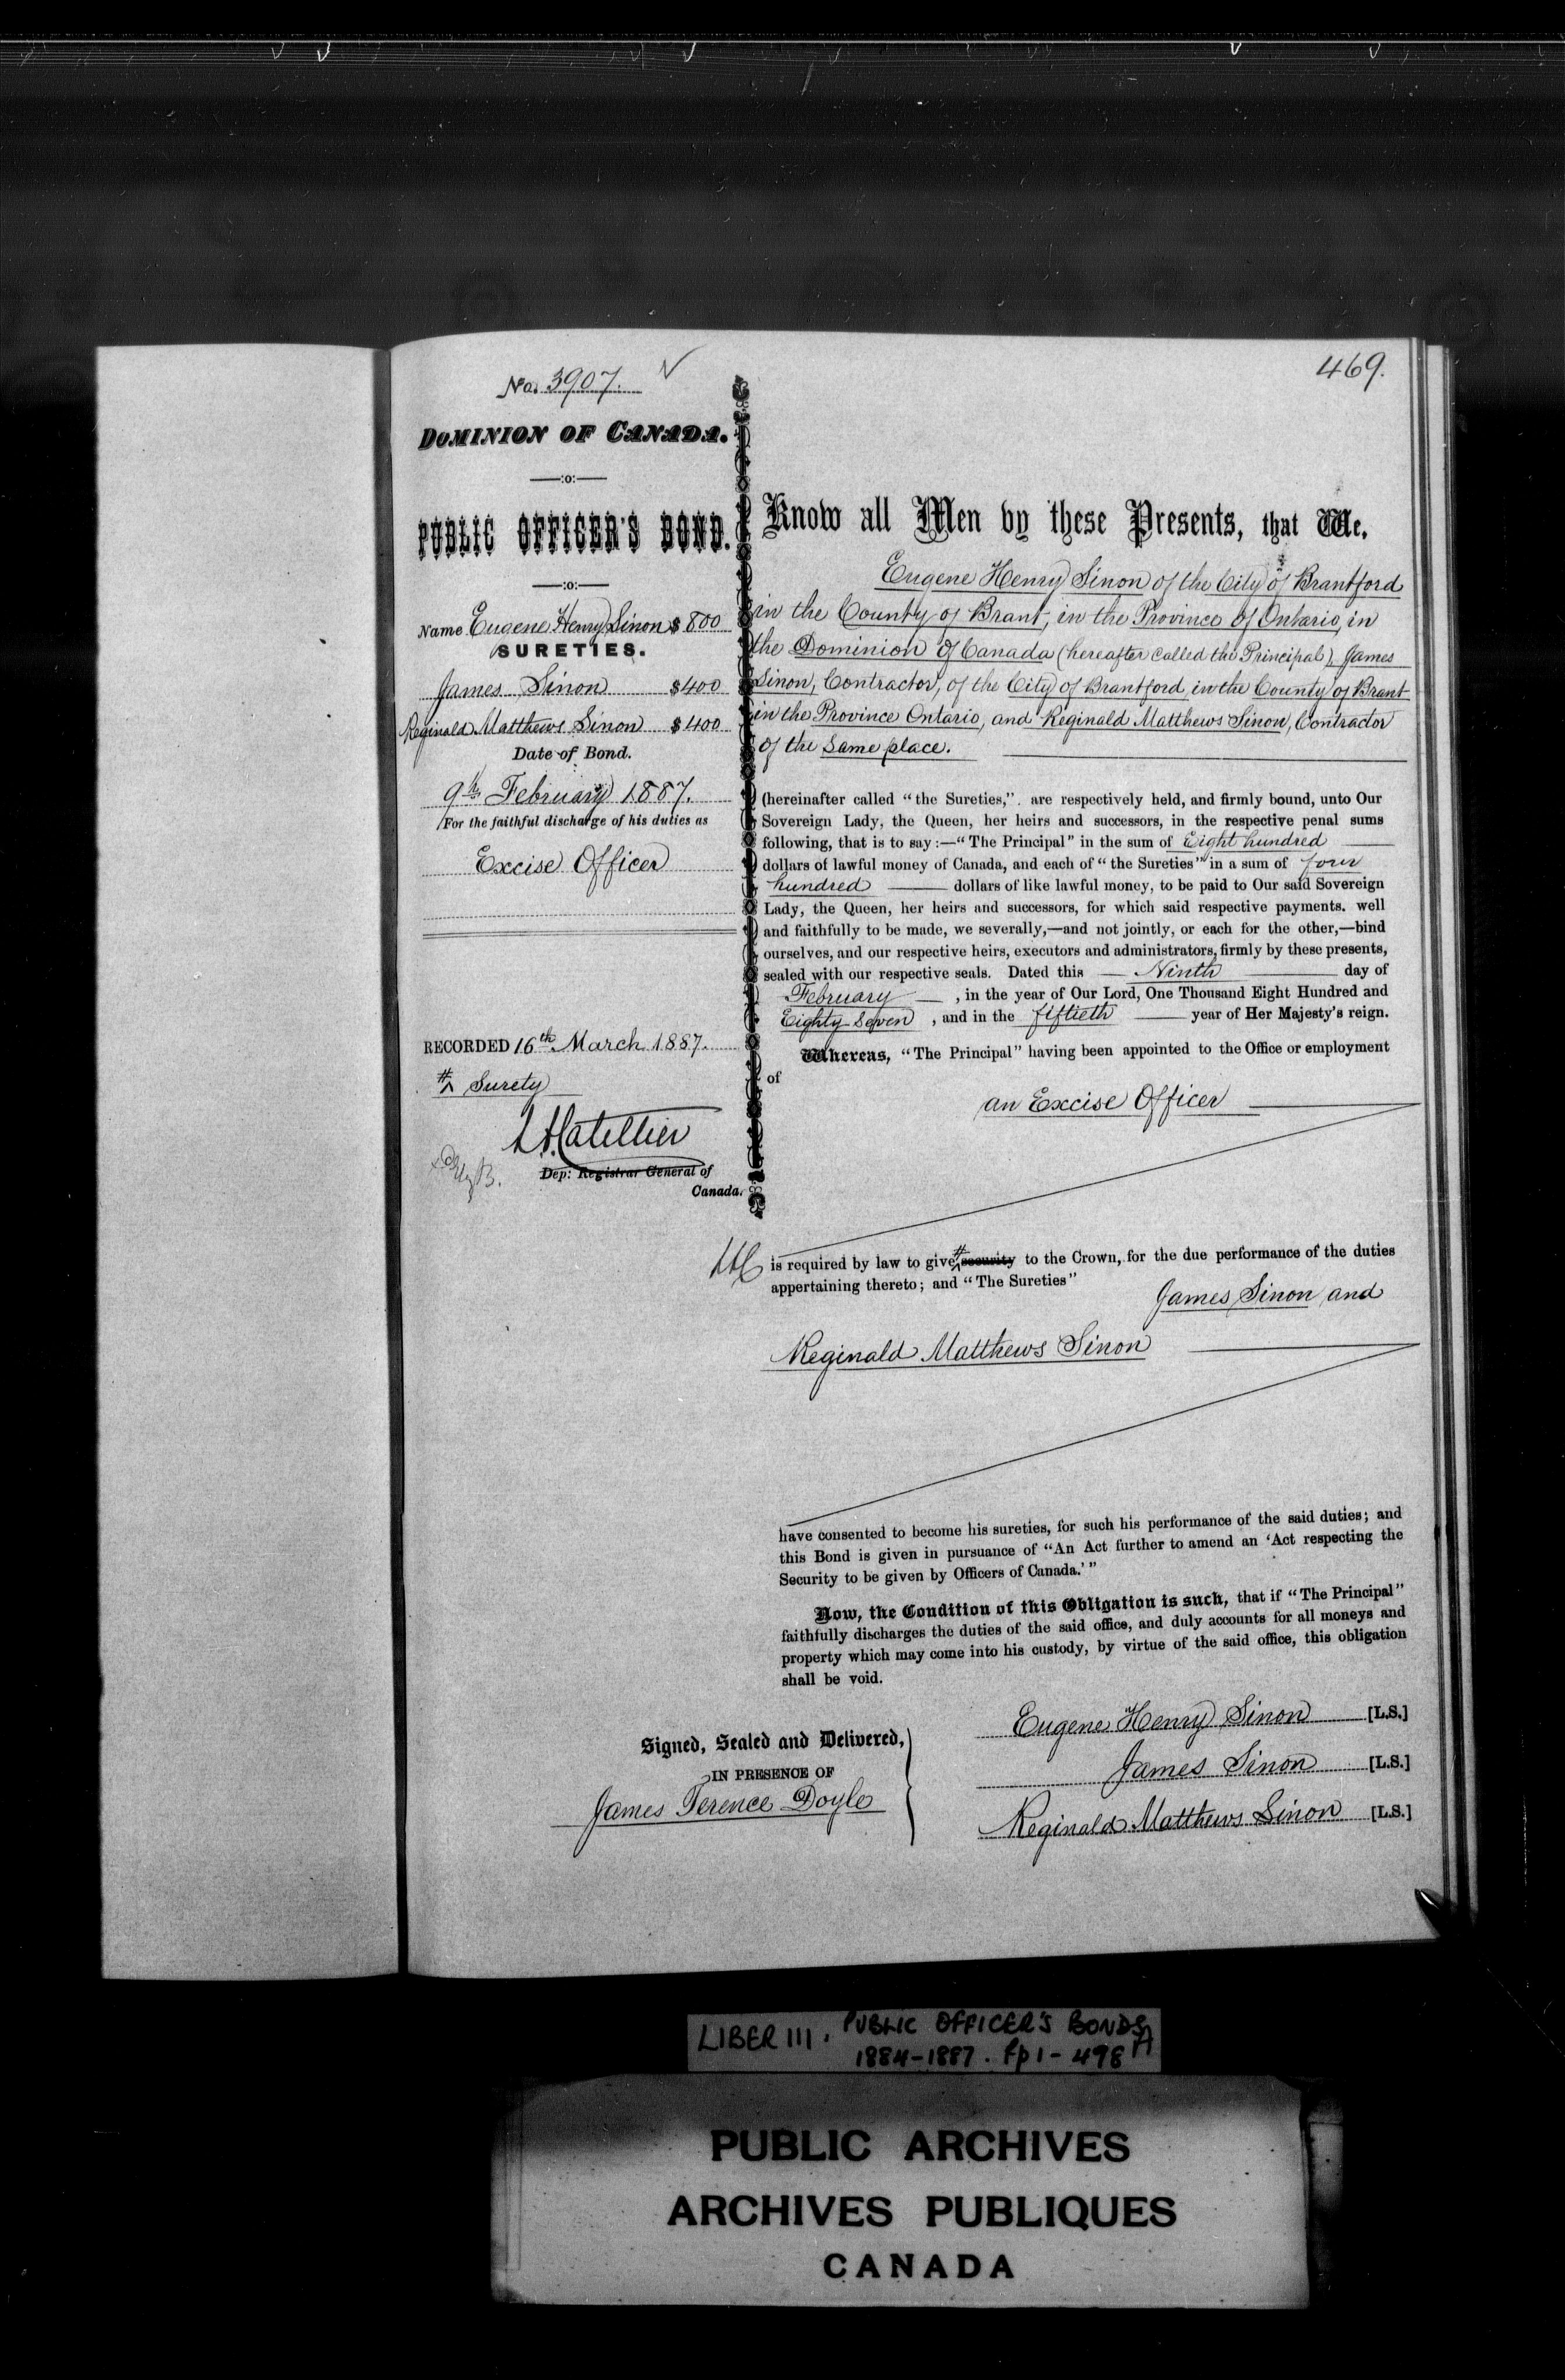 469.
No. 3907.
DOMINION OF CANADA.
—:o:—
PUBLIC OFFICER'S BOND.
—:o:—
Name Eugene Henry Sinon $ 800
SURETIES.
James Sinon $400
Reginald Matthews Sinon $400
Date of Bond.
9th February 1887.
For the faithful discharge of his duties as
Excise Officer
RECORDED 16th March 1887.
# ^ Surety
Dep: Registrar General of
Canada.
Know all Men by these Presents, that We,
Eugene Henry Sinon of the City of Brantford
in the County of Brant, in the Province of Ontario, in
the Dominion of Canada (hereafter called the Principal), James
Sinon, Contractor, of the City of Brantford in the County of Brant
in the Province Ontario, and Reginald Matthews Sinon, Contractor
of the same place.
(hereinafter called "the Sureties,". are respectively held, and firmly bound, unto Our
Sovereign Lady, the Queen, her heirs and successors, in the respective penal sums
following, that is to say :—"The Principal" in the sum of Eight hundred
dollars of lawful money of Canada, and each of "the Sureties" in a sum of four
hundred dollars of like lawful money, to be paid to Our said Sovereign
Lady, the Queen, her heirs and successors, for which said respective payments. well
and faithfully to be made, we severally,—and not jointly, or each for the other,—bind
ourselves, and our respective heirs, executors and administrators, firmly by these presents,
sealed with our respective seals. Dated this Ninth day of
February , in the year of Our Lord, One Thousand Eight Hundred and
Eighty Seven , and in the fiftieth year of Her Majesty's reign.
Whereas, "The Principal" having been appointed to the Office or employment
of
an Excise Officer
is required by law to give # ^ security to the Crown, for the due performance of the duties
appertaining thereto; and "The Sureties"
James Sinon and
Reginald Matthews Sinon
have consented to become his sureties, for such his performance of the said duties; and
this Bond is given in pursuance of "An Act further to amend an 'Act respecting the
Security to be given by Officers of Canada.'"
Now, the Condition of this Obligation is such, that if "The Principal"
faithfully discharges the duties of the said office, and duly accounts for all moneys and
property which may come into his custody, by virtue of the said office, this obligation
shall be void.
Signed, Sealed and Delivered,
IN PRESENCE OF
James Terence Doyle
Eugene Henry Sinon [L.S.]
James Sinon [L.S.]
Reginald Matthews Sinon [L.S.]
LIBER III. PUBLIC OFFICER'S BONDS
1884-1887. fp 1 - 498A
PUBLIC ARCHIVES
ARCHIVES PUBLIQUES
CANADA